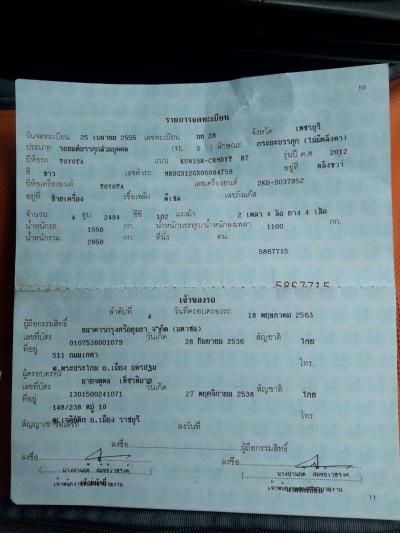 10
รายการจดทะเบียน
วันจดทะเบียน 25 เมษายน 2555 เลขทะเบียน บย 28 จังหวัด เพชรบุรี
ประเภท รถยนต์บรรทุกส่วนบุคคล (รย. 3 ) ลักษณะ กระบะบรรทุก (ไม่มีหลังคา)
ยี่ห้อรถ TOYOTA แบบ KUN15R-CRMDYT B7 รุ่นปี ค.ศ. 2012
สี ขาว เลขตัวรถ MR0GS12GX05084759 อยู่ที่ คลัสขวา
ยี่ห้อเครื่องยนต์ TOYOTA เลขเครื่องยนต์ 2KD-S037952
อยู่ที่ ซ้ายเครื่อง เชื้อเพลิง ดีเซล เลขถังแก๊ส
จำนวน 4 สูบ 2494 ซีซี 102 แรงม้า 2 เพลา 4 ล้อ ยาง 4 เส้น
น้ำหนักรถ 1550 กก. น้ำหนักบรรทุก/น้ำหนักลงเพลา 1100 กก.
น้ำหนักรวม 2650 กก. ที่นั่ง คน
5867715
5867715
เจ้าของรถ
ลำดับที่ 4 วันที่ครอบครองรถ 18 พฤษภาคม 2563
ผู้ถือกรรมสิทธิ์ ธนาคารกรุงศรีอยุธยา จำกัด (มหาชน)
เลขที่บัตร 0107536001079 วันเกิด 28 กันยายน 2536 สัญชาติ ไทย
ที่อยู่ 511 ถนน
ต.พระประโทน อ.เมือง นครปฐม โทร.
ผู้ครอบครอง
เลขที่บัตร 1301500241071 วันเกิด 27 พฤศจิกายน 2538 สัญชาติ ไทย
ที่อยู่ 148/238 หมู่ 10
อ.เมือง ราชบุรี โทร.
สัญญาเช่าซื้อเลขที่ ลงวันที่
ลงชื่อ ผู้ถือกรรมสิทธิ์
ลงชื่อ ลงชื่อ
11